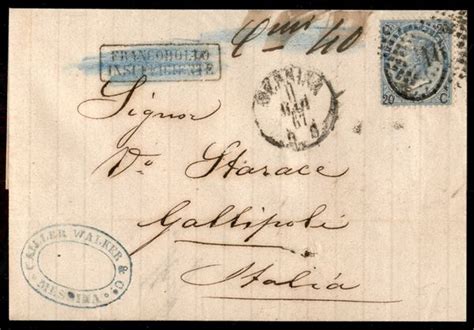 Cmi 40
FRANCOBOLLO
INSUFFICIENTE
MESSINA
11
MAG
67
20 C
20 C
Signor
Vo Starace
Gallipoli
Italia
CAILLER WALKER & Co.
MESSINA